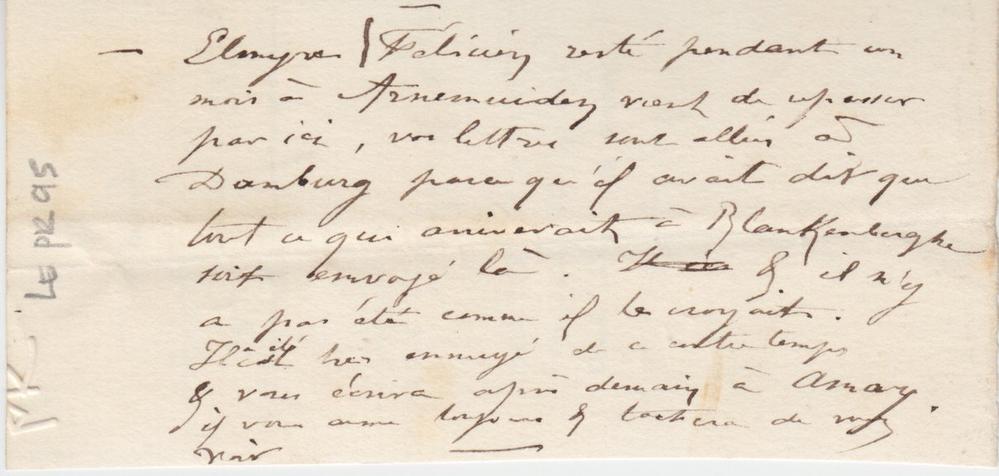 — Elmyre / Félicien resté pendant un
mois à Arnemuiden vient de repasser
par ici, vos lettres sont allées à
Domburg parce qu'il avait dit que
tout ce qui arriverait à Blankenberghe
soit envoyé là. & il n'y
a pas été comme il le croyait.
Il a été très ennuyé de ce contre temps
& vous écrira après demain à Amay.
il vous aime toujours & tachera de vous
voir
LE PR 95